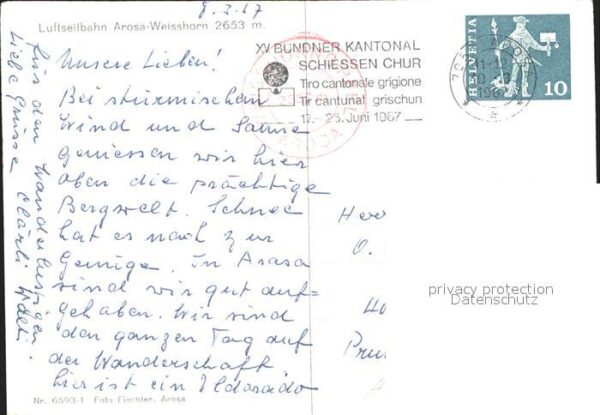 8.3.67
Luftseilbahn Arosa-Weisshorn 2653 m.
Unsere Lieben!
Bei stürmischem
Wind und Sonne
geniessen wir hier
oben die prächtige
Bergwelt. Schnee
hat es noch zur
Genüge. In Arosa
sind wir gut auf=
gehoben. Wir sind
den ganzen Tag auf
der Wanderschaft
hier ist ein Eldorado
für den Wanderlustigen.
Liebe Grüsse
Nr. 6593-1 Foto Fischter, Arosa
XV BÜNDNER KANTONAL
SCHIESSEN CHUR
Tiro cantonale grigione
Tir cantunal grischun
17.- 25. Juni 1967
AROSA
HELVETIA
10
privacy protection
Datenschutz